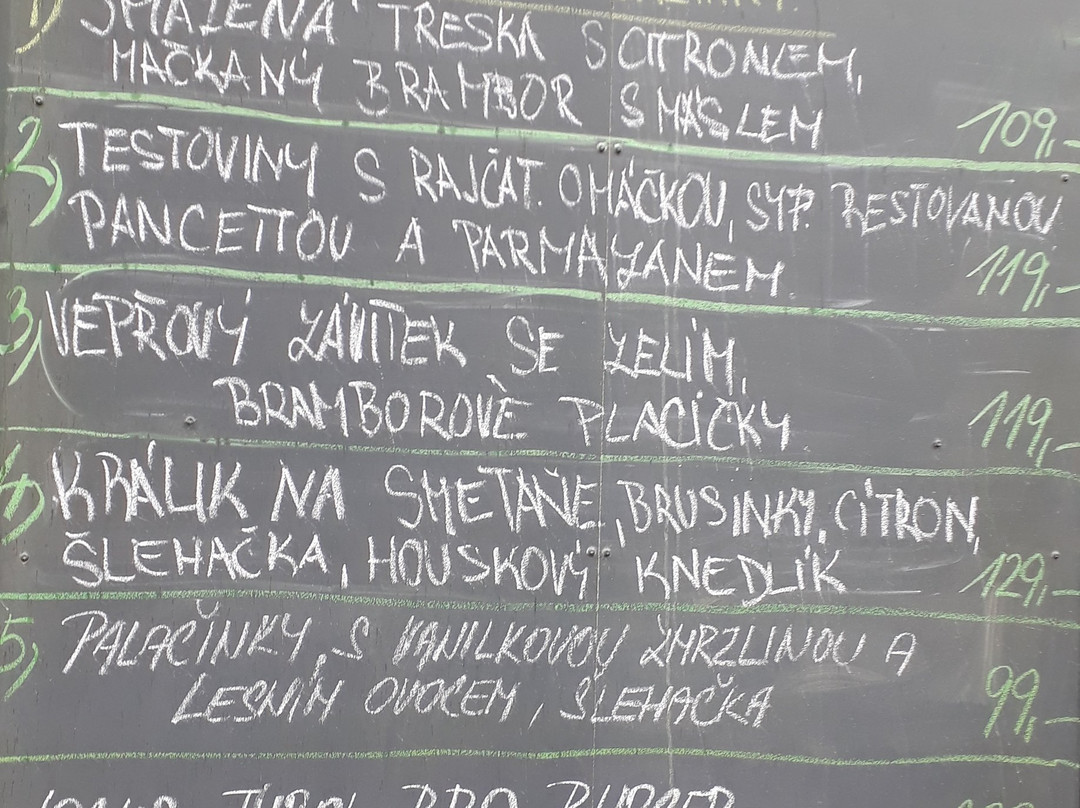 1) SMAŽENÁ TRESKA S CITRONEM,
MAČKANÝ BRAMBOR S MÁSLEM 109,-
2) TĚSTOVINY S RAJČAT. OMÁČKOU, SYP. RESTOVANOU
PANCETTOU A PARMAZÁNEM 119,-
3) VEPŘOVÝ ZÁVITEK SE ZELÍM,
BRAMBOROVÉ PLACIČKY 119,-
4) KRÁLIK NA SMETANĚ, BRUSINKY, CITRON,
ŠLEHAČKA, HOUSKOVÝ KNEDLÍK 129,-
5) PALAČINKY, S VANILKOVOU ZMRZLINOU A
LESNÍM OVOCEM, ŠLEHAČKA 99,-